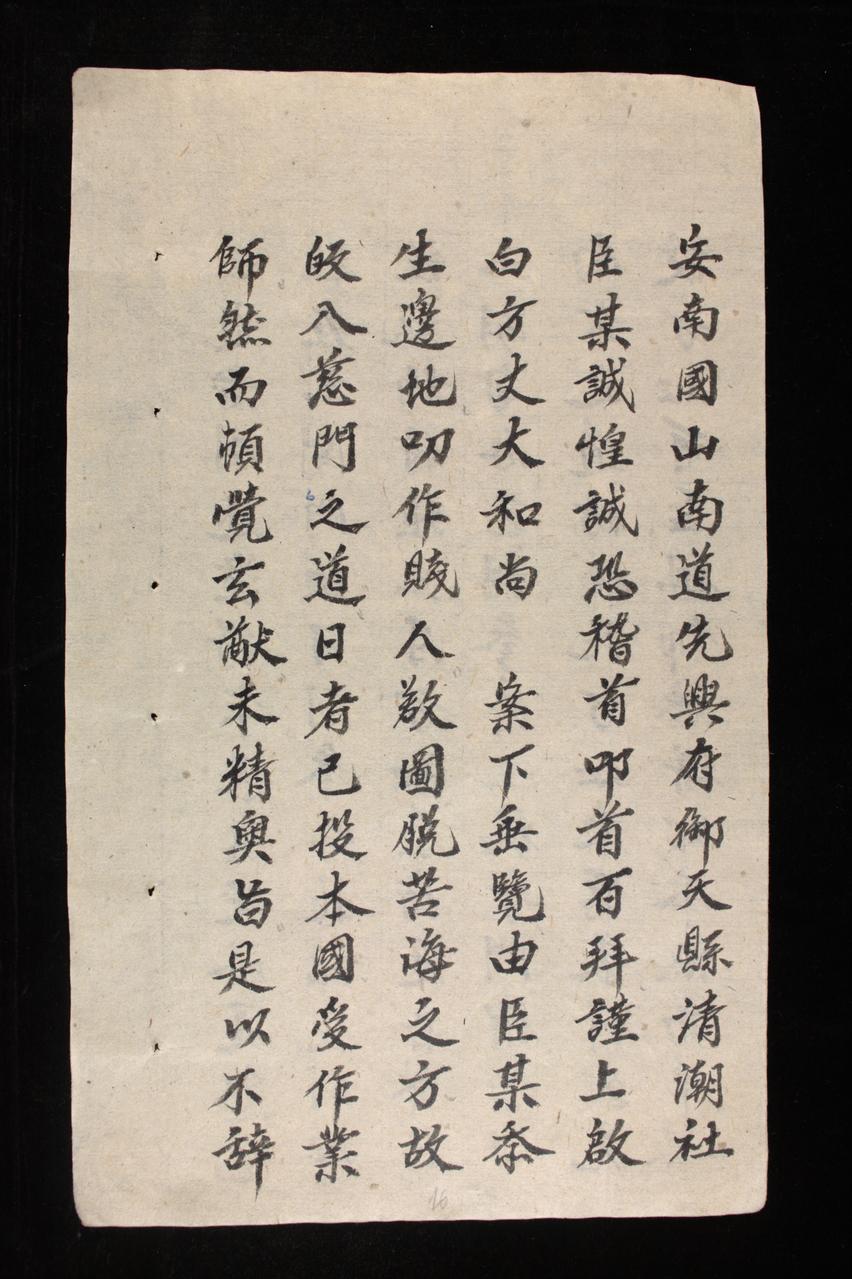 安南國山南道先興府御天縣清潮社
臣某誠惶誠恐稽首叩首百拜謹上啟
白方丈大和尚 案下垂覽由臣某忝
生邊地叨作賤人欲圖脫苦海之方故
皈入慈門之道日者已投本國受作業
師然而頓覺玄猷未精奧旨是以不辞
16